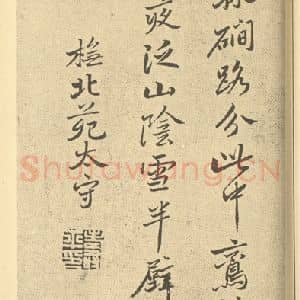 磵路分此中鸞
夜泛山陰雪半壁
北苑太守
Shufawang.CN